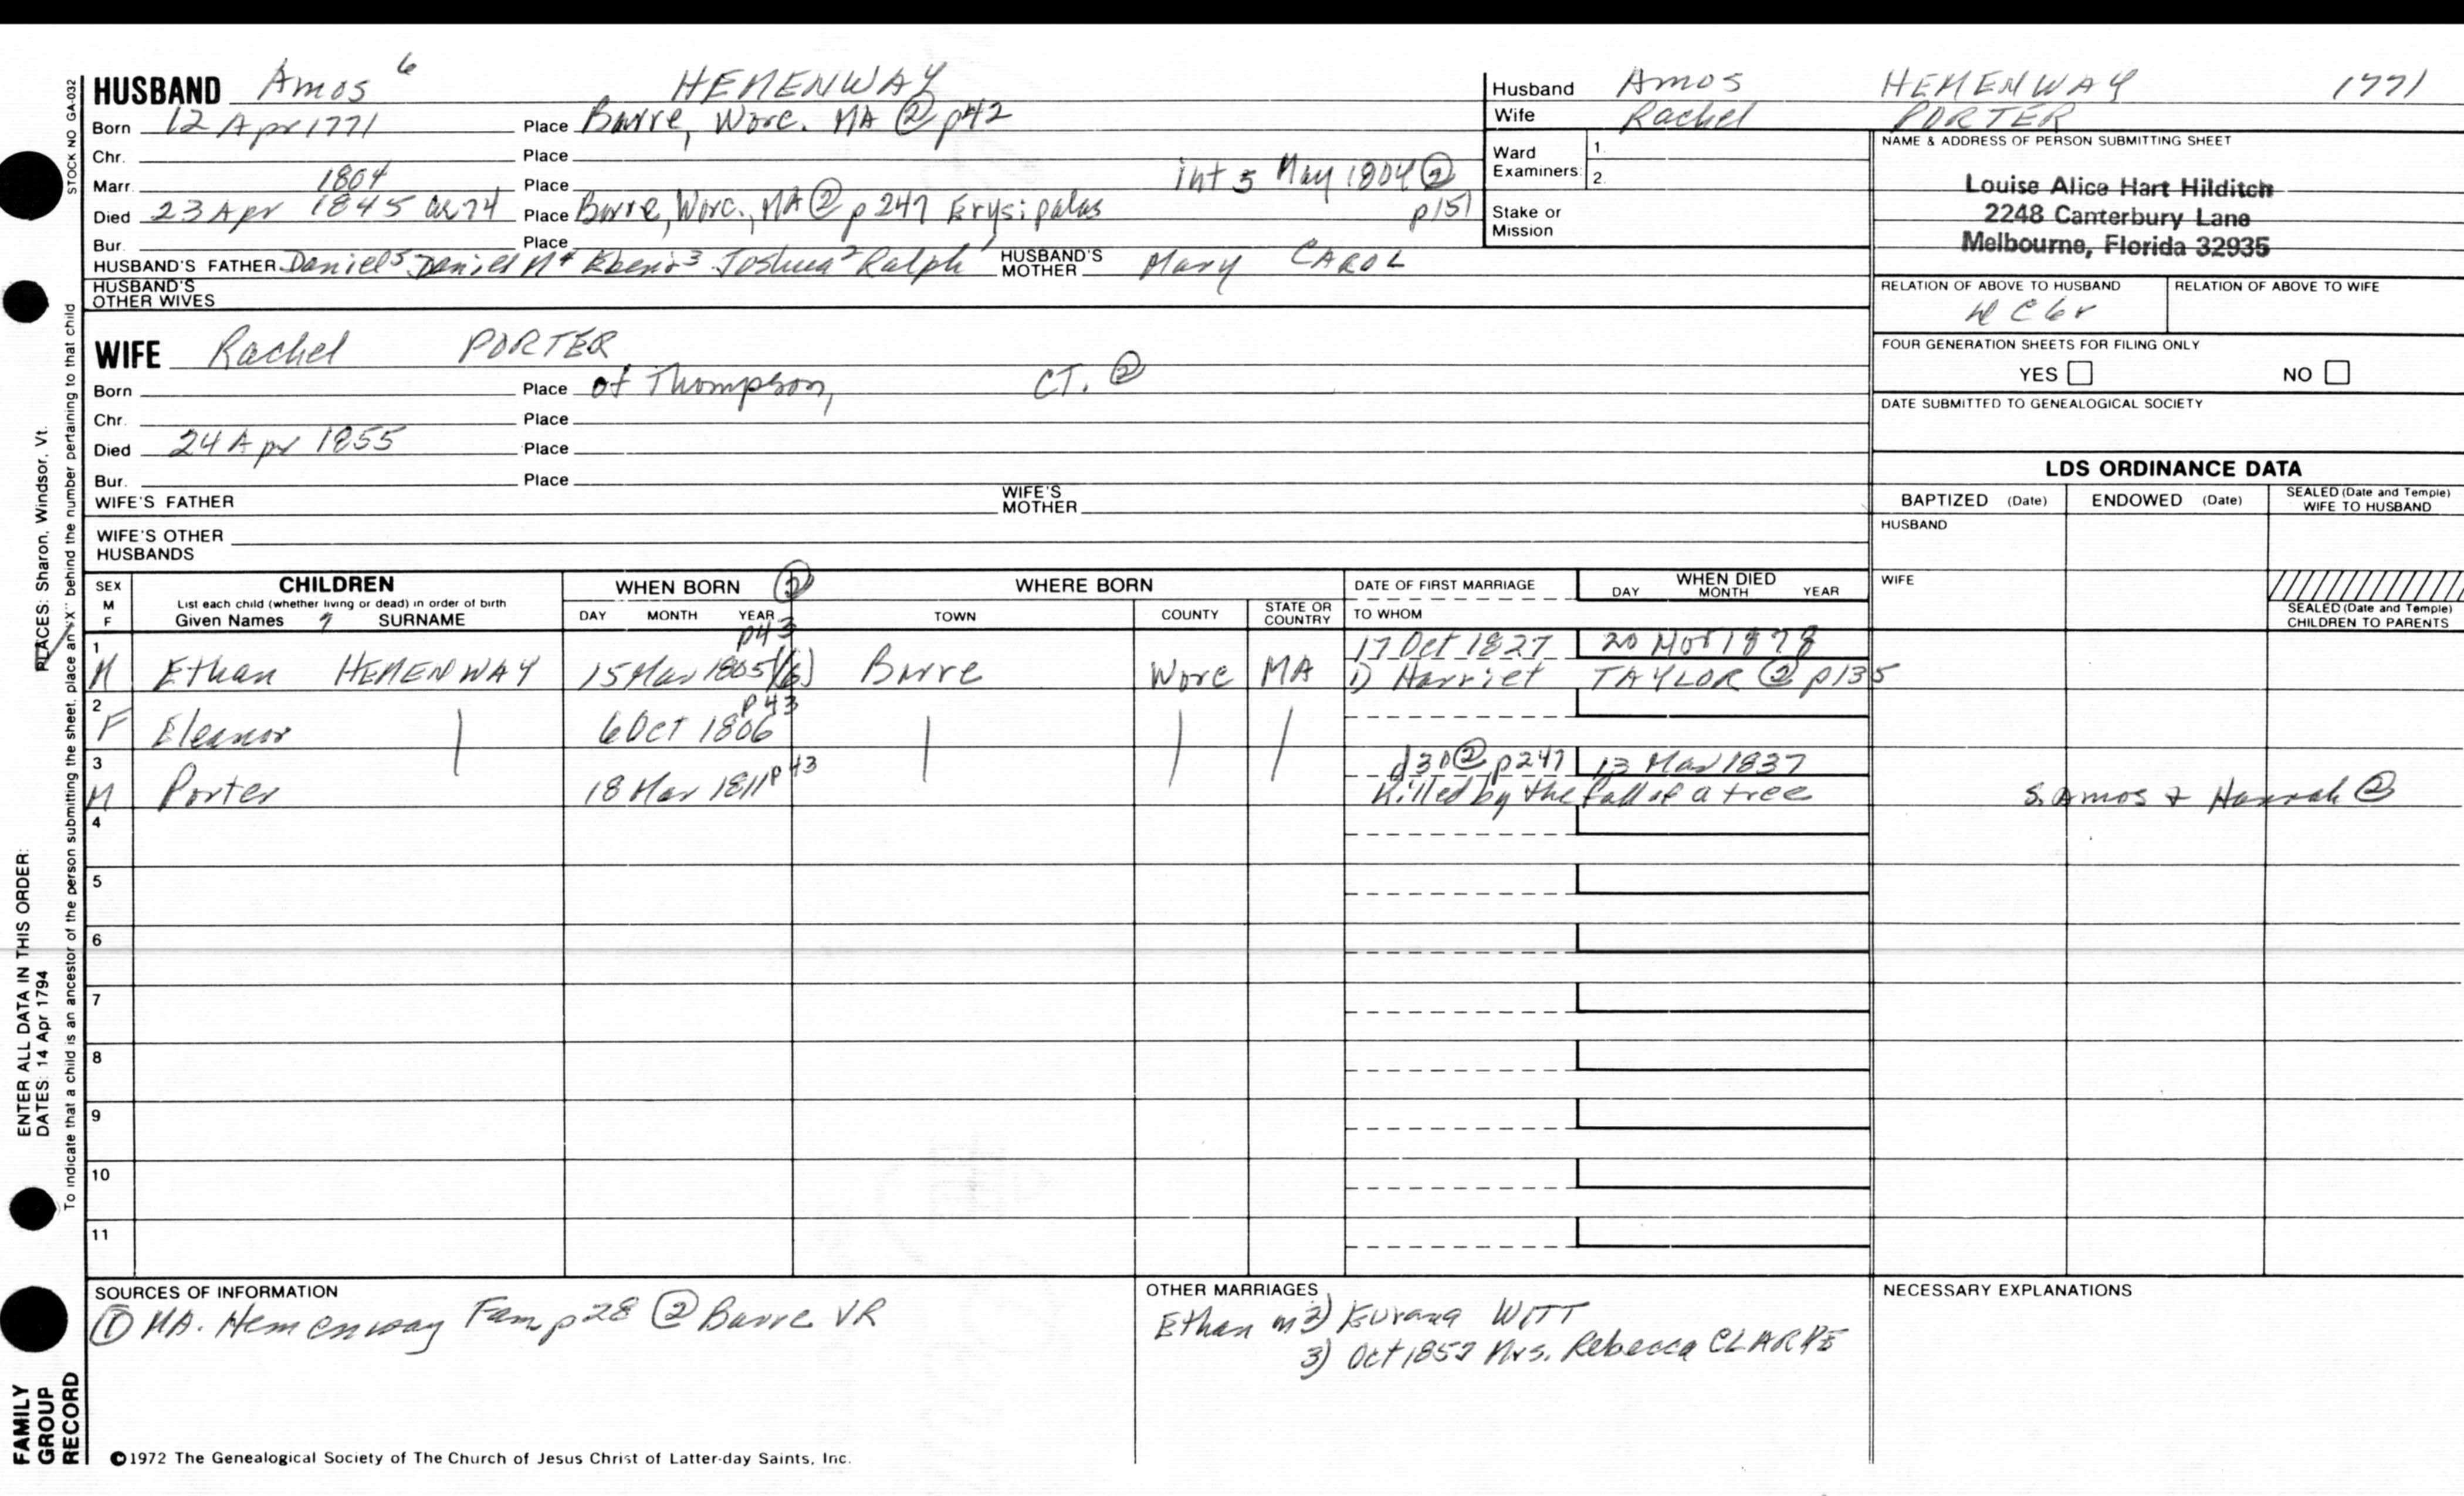 HUSBAND Amos 6 HEMENWAY
Born 12 Apr 1771 Place Barre, Worc. MA ② p42
Chr. Place
Marr. 1804 Place int 5 May 1804 ②
p151
Died 23 Apr 1845 ae 74 Place Barre, Worc., MA ② p247 Erysipalas
Bur. Place
HUSBAND'S FATHER Daniel5 Daniel N4 Eben'r3 Joshua2 Ralph' HUSBAND'S MOTHER Mary CAROL
HUSBAND'S OTHER WIVES
WIFE Rachel PORTER
Born Place of Thompson, CT. ②
Chr. Place
Died 24 Apr 1855 Place
Bur. Place
WIFE'S FATHER WIFE'S MOTHER
WIFE'S OTHER HUSBANDS
Husband Amos HEMENWAY 1771
Wife Rachel PORTER
Ward Examiners: 1.
2.
Stake or Mission
NAME & ADDRESS OF PERSON SUBMITTING SHEET
Louise Alice Hart Hilditch
2248 Canterbury Lane
Melbourne, Florida 32935
RELATION OF ABOVE TO HUSBAND RELATION OF ABOVE TO WIFE
FOUR GENERATION SHEETS FOR FILING ONLY
YES NO
DATE SUBMITTED TO GENEALOGICAL SOCIETY
LDS ORDINANCE DATA
BAPTIZED (Date) ENDOWED (Date) SEALED (Date and Temple) WIFE TO HUSBAND
HUSBAND
WIFE
SEALED (Date and Temple) CHILDREN TO PARENTS
SEX M F CHILDREN WHEN BORN ② WHERE BORN DATE OF FIRST MARRIAGE WHEN DIED
List each child (whether living or dead) in order of birth
Given Names 7 SURNAME DAY MONTH YEAR TOWN COUNTY STATE OR COUNTRY TO WHOM DAY MONTH YEAR
1 p43 17 Oct 1827 20 Nov 1878
M Ethan HEMENWAY 15 Mar 1805(6) Barre Worc MA 1) Harriet TAYLOR ② p135
2 p43
F Eleanor 6 Oct 1806
3 d30 ② p247 13 Mar 1837
M Porter 18 Mar 1811 p43 Killed by the fall of a tree S. Amos & Hannah ②
4
5
6
7
8
9
10
11
SOURCES OF INFORMATION
① MA. Hemenway Fam p28 ② Barre VR
OTHER MARRIAGES
Ethan m 2) Eurana WITT
3) Oct 1857 Mrs. Rebecca CLARKE
NECESSARY EXPLANATIONS
©1972 The Genealogical Society of The Church of Jesus Christ of Latter-day Saints, Inc.
STOCK NO GA-032
To indicate that a child is an ancestor of the person submitting the sheet, place an "X" behind the number pertaining to that child
ENTER ALL DATA IN THIS ORDER:
DATES: 14 Apr 1794 PLACES: Sharon, Windsor, Vt.
FAMILY
GROUP
RECORD